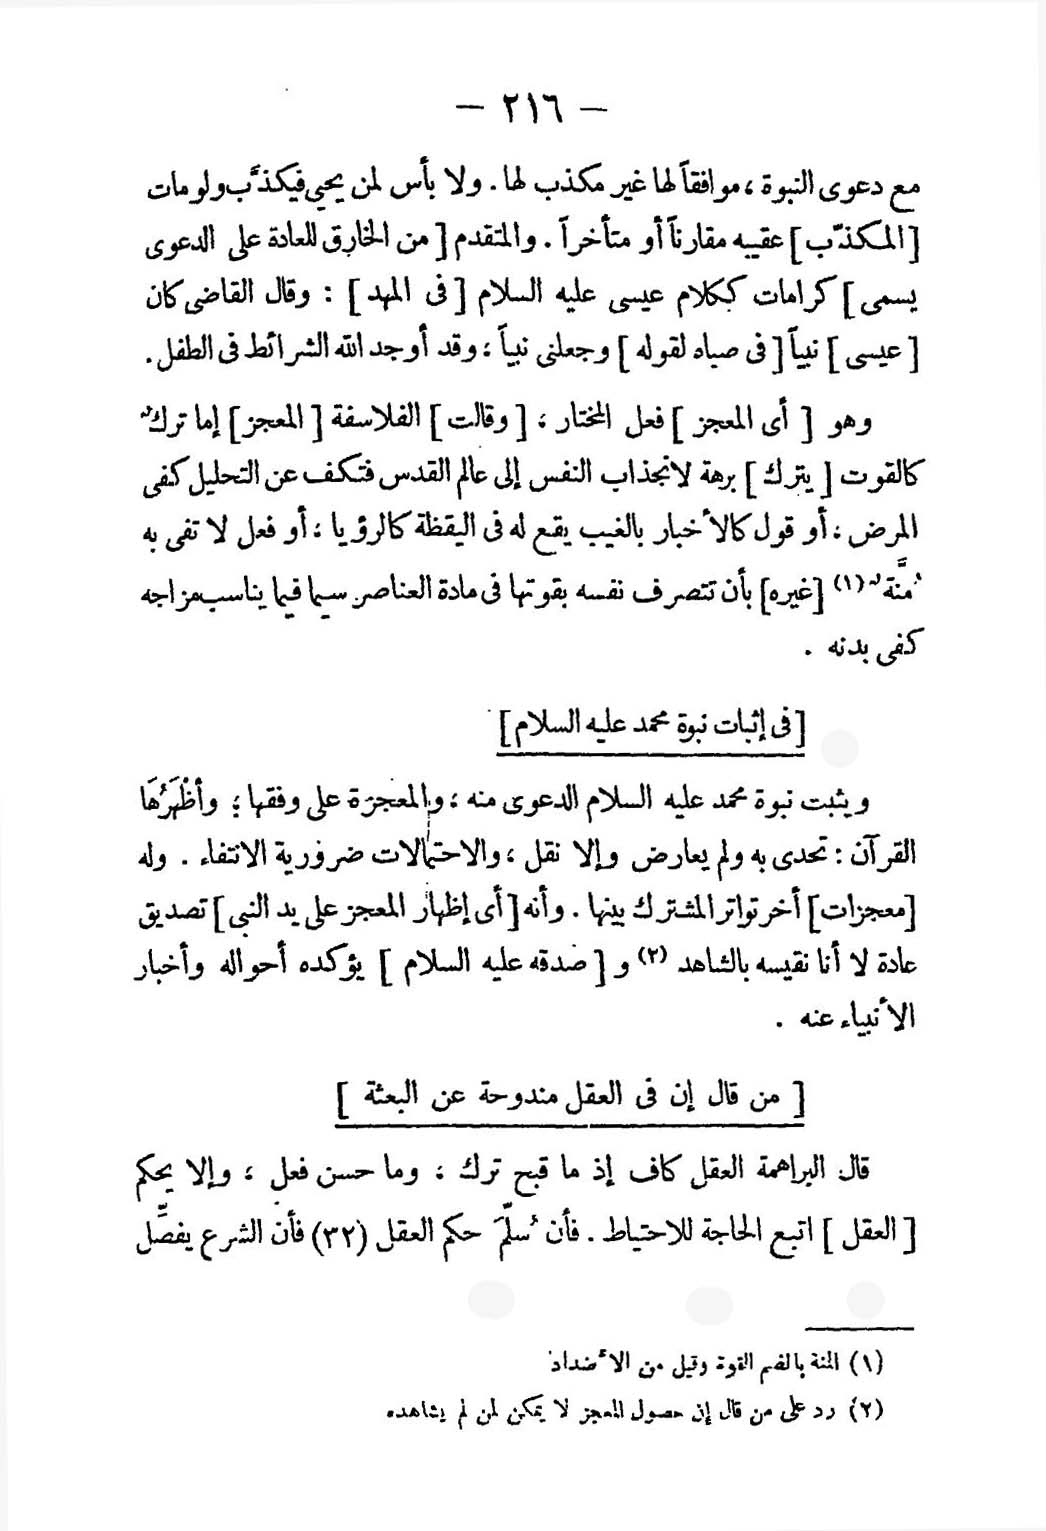 — ٢١٦ —
مع دعوى النبوة ، موافقاً لها غير مكذب لها . ولا بأس لمن يحيي فيكذَّب ولو مات
[ المكذّب ] عقيبه مقارناً أو متأخراً . والمتقدم [ من الخارق للعادة على الدعوى
يسمى ] كرامات ككلام عيسى عليه السلام [ فى المهد ] : وقال القاضى كان
[ عيسى ] نبياً [ فى صباه لقوله ] وجعلنى نبياً ؛ وقد أوجد الله الشرائط فى الطفل .
وهو [ أى المعجز ] فعل المختار ؛ [ وقالت ] الفلاسفة [ المعجز ] إما تركٌ
كالقوت [ يترك ] برهة لانجذاب النفس إلى عالم القدس فتكف عن التحليل كفى
المرض ؛ أو قول كالأخبار بالغيب يقع له فى اليقظة كالرؤيا ؛ أو فعل لا تفى به
مُنَّةٌ (١) [غيره] بأن تتصرف نفسه بقوتها فى مادة العناصر سيما فيما يناسب مزاجه
كفى بدنه .
[ فى إثبات نبوة محمد عليه السلام ]
ويثبت نبوة محمد عليه السلام الدعوى منه ؛ والمعجزة على وفقها ؛ وأظْهَرُهَا
القرآن : تحدى به ولم يعارض وإلا نقل ، والاحتمالات ضرورية الانتفاء . وله
[معجزات] أخر تواتر المشترك بينها . وأنه [ أى إظهار المعجز على يد النبى ] تصديق
عادة لا أنا نقيسه بالشاهد (٢) و [ صدقه عليه السلام ] يؤكده أحواله وأخبار
الأنبياء عنه .
[ من قال إن فى العقل مندوحة عن البعثة ]
قال البراهمة العقل كاف إذ ما قبح ترك ؛ وما حسن فعل ؛ وإلا يحكم
[ العقل ] اتبع الحاجة للاحتياط . فأن سُلِّمَ حكم العقل (٣٢) فأن الشرع يفصِّل
(١) المنة بالضم القوة وقيل من الأضداد
(٢) رد على من قال إن حصول المعجز لا يمكن لمن لم يشاهده